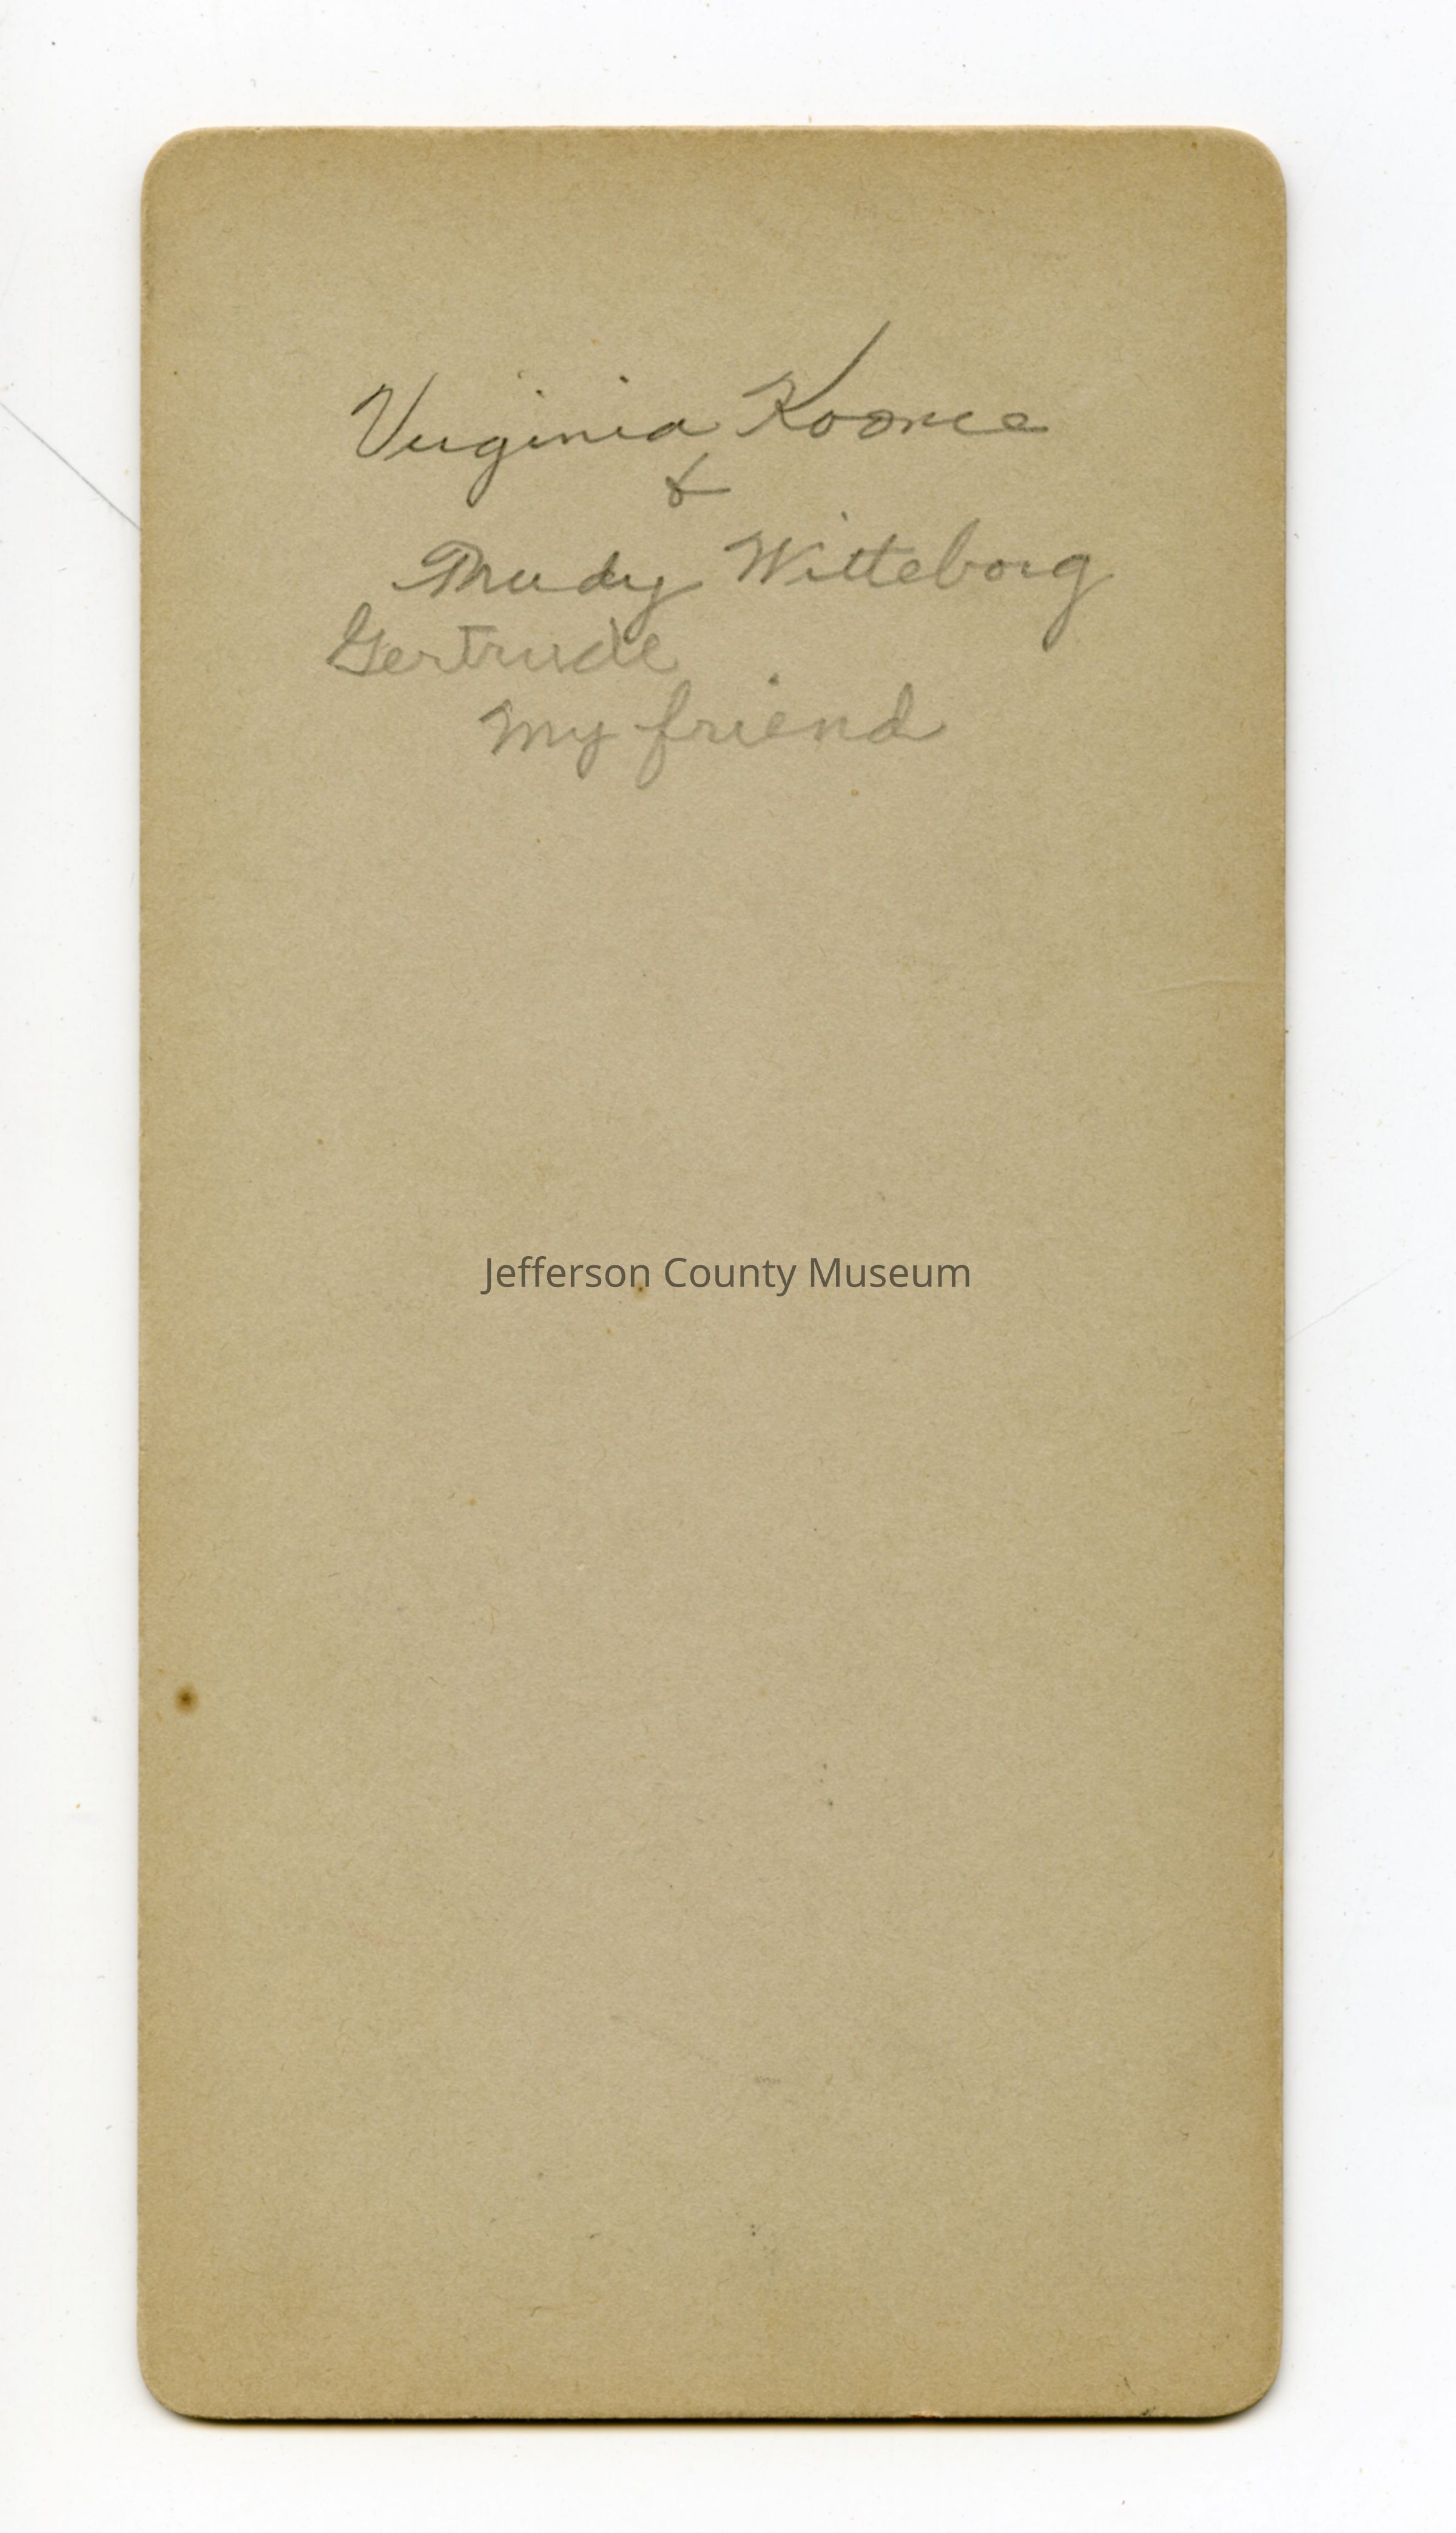 Virginia Koonce
&
Trudy Witteborg
Gertrude
My friend
Jefferson County Museum